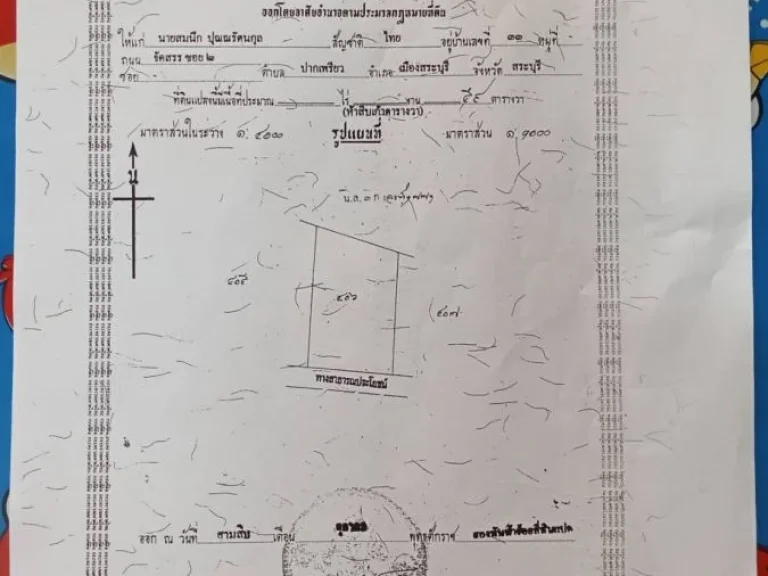 ออกโดยอาศัยอำนาจตามประมวลกฎหมายที่ดิน
ให้แก่ นายสมนึก ปุณณรัตนกุล สัญชาติ ไทย อยู่บ้านเลขที่ ๑๑ หมู่ที่
ถนน รัตสรร ซอย ๒
ซอย ตำบล ปากเพรียว อำเภอ เมืองสระบุรี จังหวัด สระบุรี
ที่ดินแปลงนี้มีเนื้อที่ประมาณ ไร่ งาน ๕๙ ตารางวา
(ห้าสิบเก้าตารางวา)
มาตราส่วนในระวาง ๑: ๔๐๐๐ รูปแผนที่ มาตราส่วน ๑: ๑๐๐๐
น
น.ส.๓ ก
๕๐๖
๕๐๗
ทางสาธารณประโยชน์
ออก ณ วันที่ สามสิบ เดือน ตุลาคม พุทธศักราช